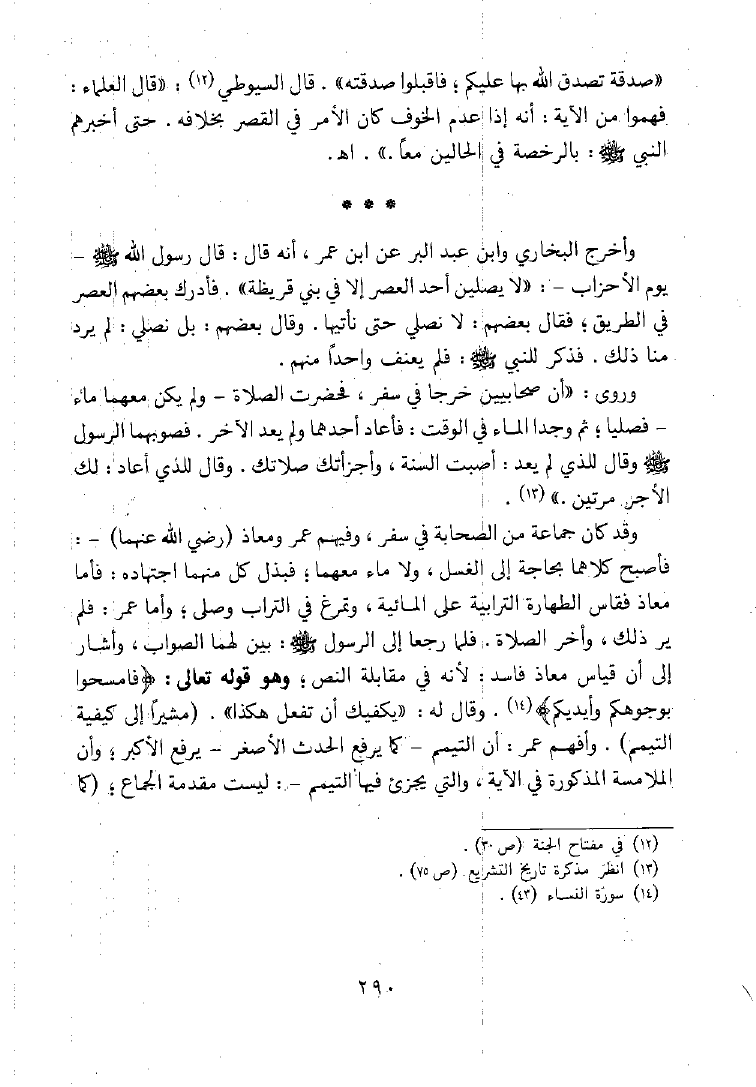 «صدقة تصدق الله بها عليكم ؛ فاقبلوا صدقته» . قال السيوطي (١٢) : «قال العلماء :
فهموا من الآية : أنه إذا عدم الخوف كان الأمر في القصر بخلافه . حتى أخبرهم
النبي ﷺ : بالرخصة في الحالين معاً .» . اهـ.
* * *
وأخرج البخاري وابن عبد البر عن ابن عمر ، أنه قال : قال رسول الله ﷺ –
يوم الأحزاب – : «لا يصلين أحد العصر إلا في بني قريظة» . فأدرك بعضهم العصر
في الطريق ؛ فقال بعضهم : لا نصلي حتى نأتيها . وقال بعضهم : بل نصلي : لم يرد
منا ذلك . فذكر للنبي ﷺ : فلم يعنف واحداً منهم .
وروى : «أن صحابيين خرجا في سفر ، فحضرت الصلاة – ولم يكن معهما ماء
– فصليا ؛ ثم وجدا الماء في الوقت : فأعاد أحدهما ولم يعد الآخر . فصوبهما الرسول
ﷺ وقال للذي لم يعد : أصبت السنة ، وأجزأتك صلاتك . وقال للذي أعاد : لك
الأجر مرتين .» (١٣) .
وقد كان جماعة من الصحابة في سفر ، وفيهم عمر ومعاذ (رضي الله عنهما) – :
فأصبح كلاهما بحاجة إلى الغسل ، ولا ماء معهما ؛ فبذل كل منهما اجتهاده : فأما
معاذ فقاس الطهارة الترابية على المائية ، وتمرغ في التراب وصلى ؛ وأما عمر : فلم
ير ذلك ، وأخر الصلاة . فلما رجعا إلى الرسول ﷺ : بين لهما الصواب ، وأشار
إلى أن قياس معاذ فاسد : لأنه في مقابلة النص ؛ وهو قوله تعالى : ﴿فامسحوا
بوجوهكم وأيديكم﴾ (١٤) . وقال له : «يكفيك أن تفعل هكذا» . (مشيراً إلى كيفية
التيمم) . وأفهم عمر : أن التيمم – كما يرفع الحدث الأصغر – يرفع الأكبر ؛ وأن
الملامسة المذكورة في الآية ، والتي يجزئ فيها التيمم – : ليست مقدمة الجماع ؛ (كما
(١٢) في مفتاح الجنة (ص ٣٠) .
(١٣) انظر مذكرة تاريخ التشريع (ص ٧٥) .
(١٤) سورة النساء (٤٣) .
٢٩٠